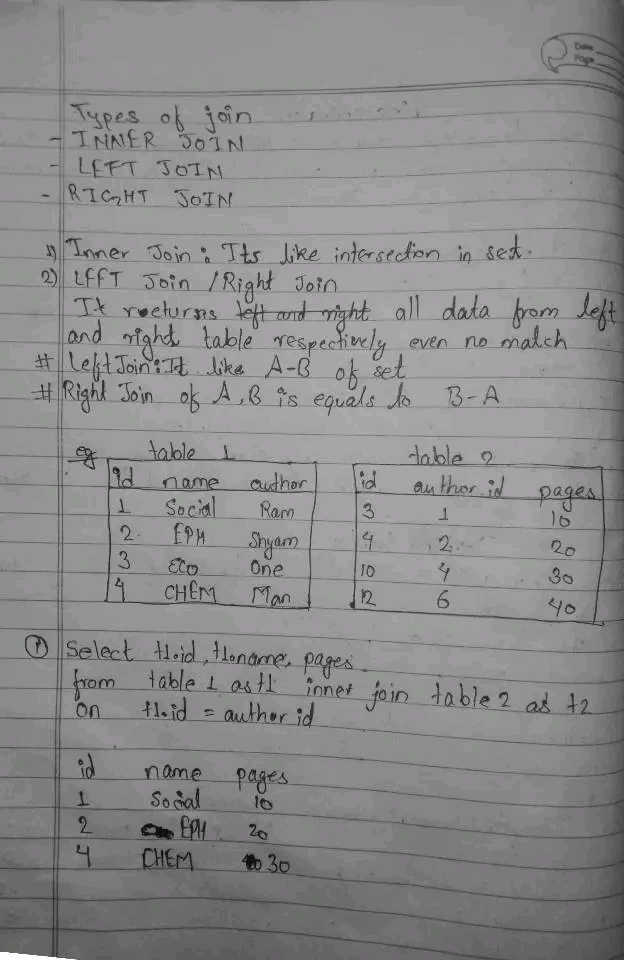 Date
Page
Types of join
- INNER JOIN
- LEFT JOIN
- RIGHT JOIN
1) Inner Join : Its like intersection in set.
2) LEFT Join / Right Join
It recturns left and right all data from left
and right table respectively even no match
# Left Join : It like A-B of set
# Right Join of A,B is equals to B-A
eg table 1 table 2
id name author id author id pages
1 Social Ram 3 1 10
2 EPH Shyam 4 2 20
3 ECO One 10 4 30
4 CHEM Man 12 6 40
① Select t1.id, t1.name, pages
from table 1 as t1 inner join table 2 as t2
on t1.id = author id
id name pages
1 Social 10
2 EPH 20
4 CHEM 30